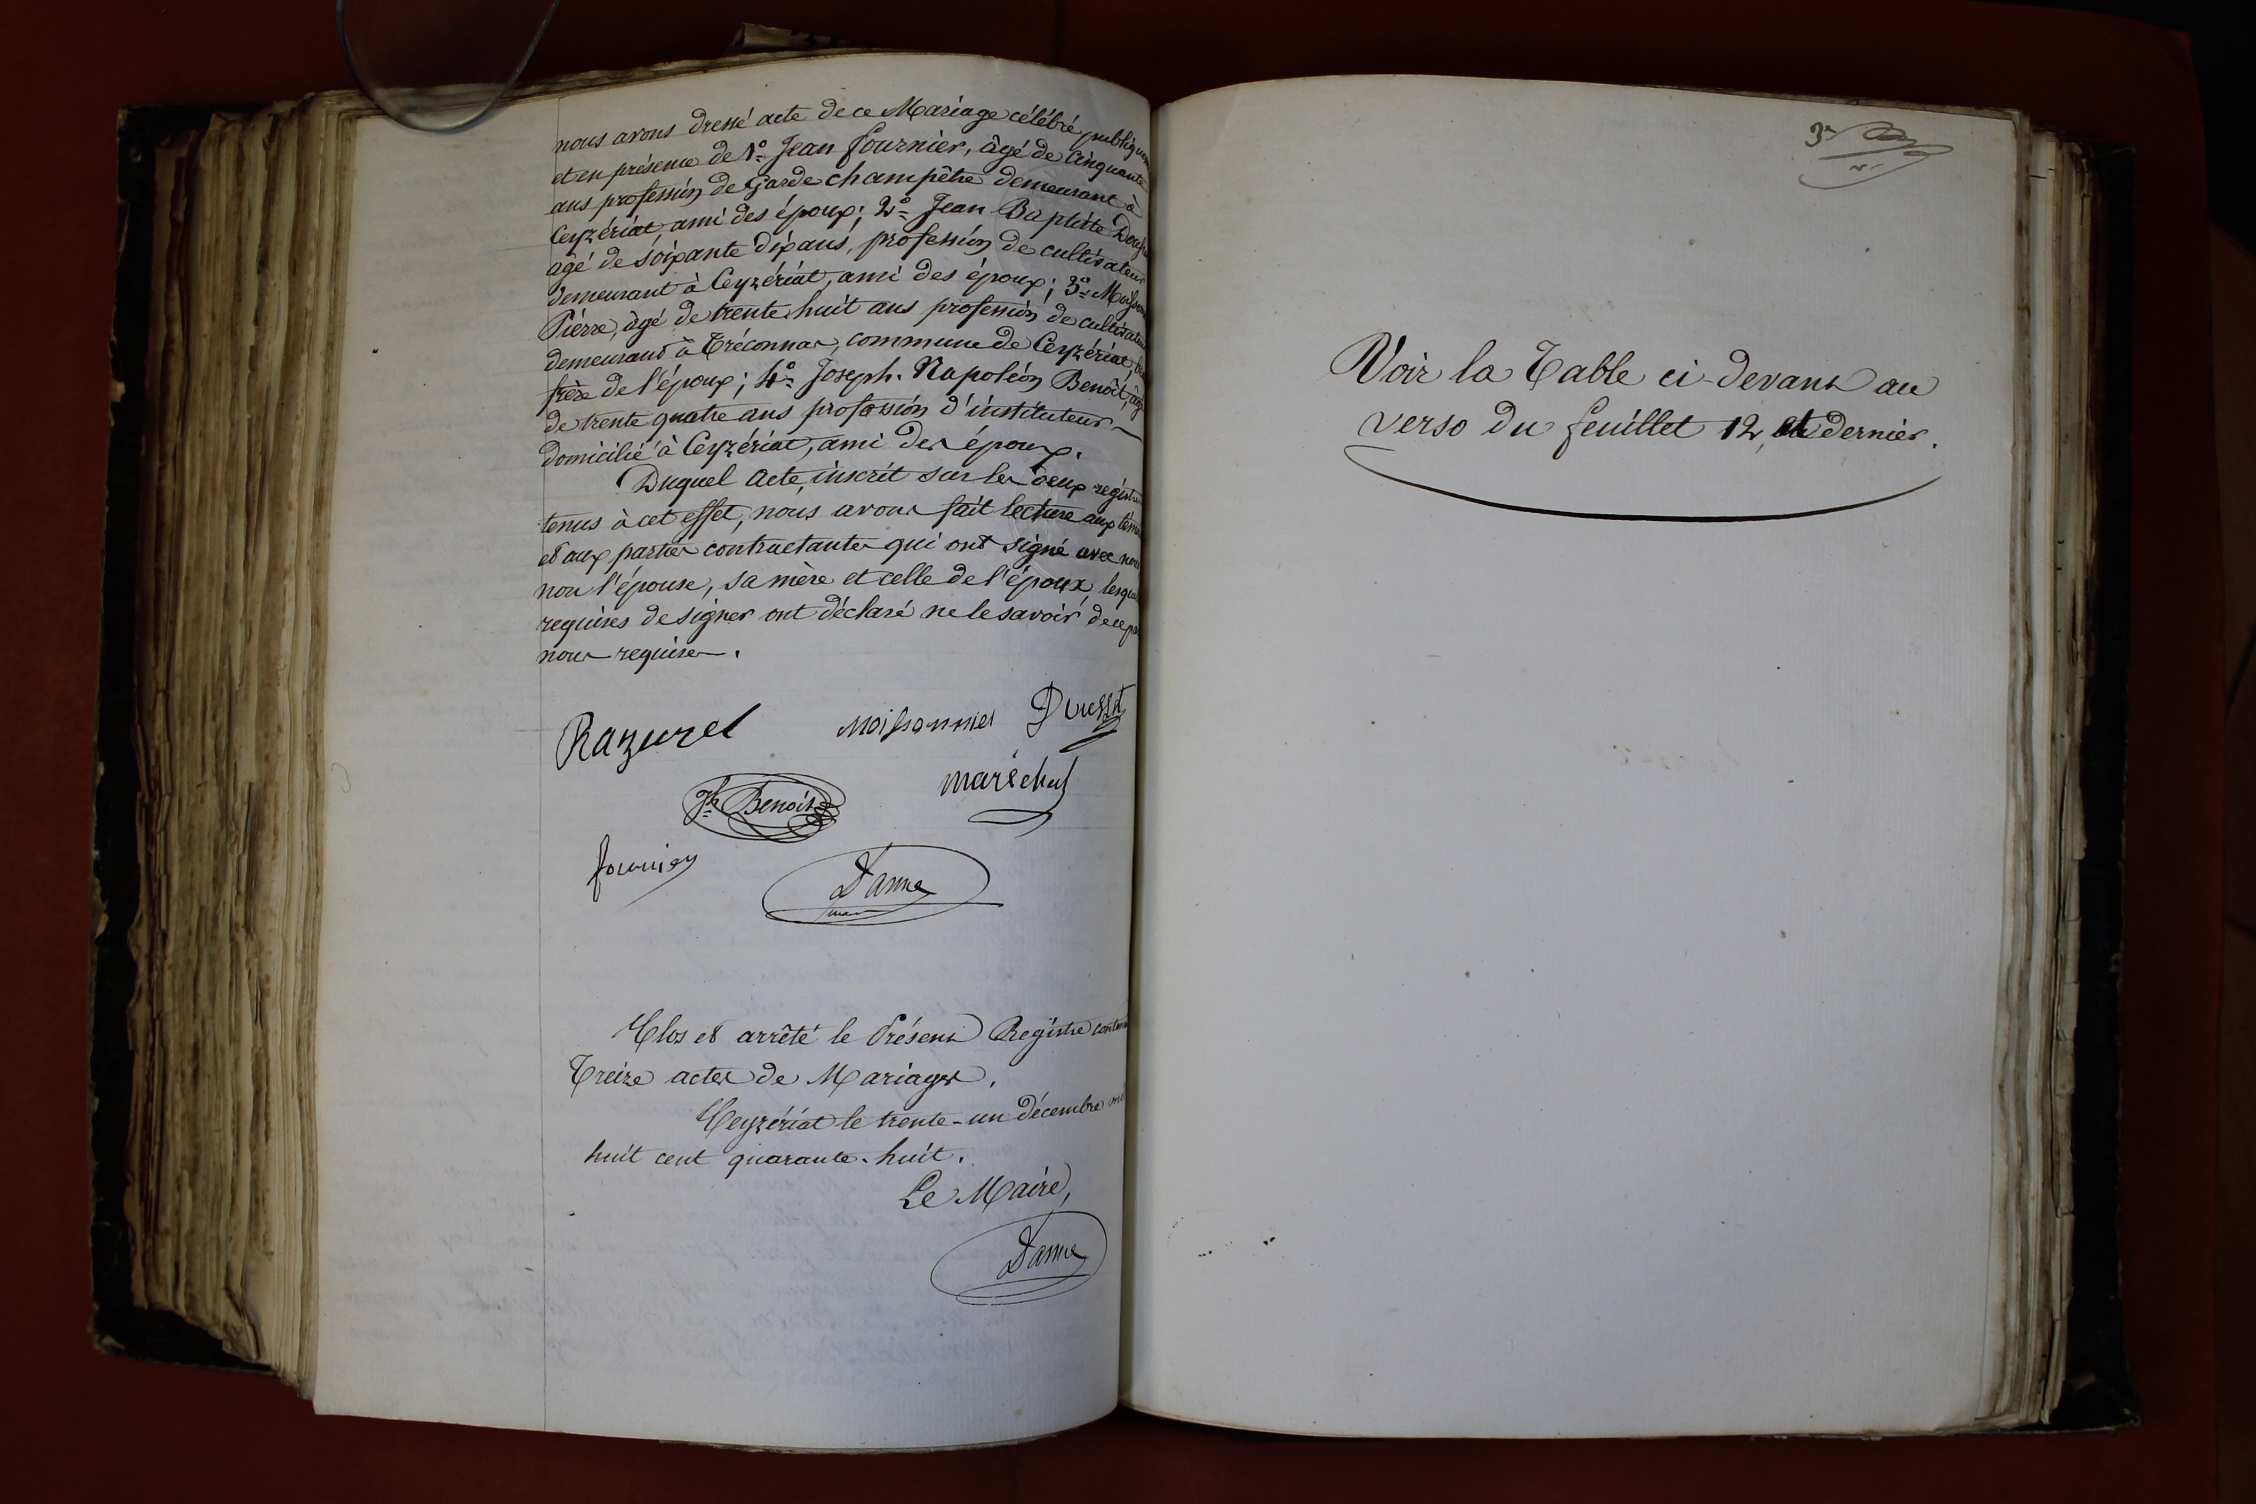 nous avons dressé acte de ce Mariage célébré
et en présence de 1° Jean fournier, âgé de cinquante
ans profession de Garde champêtre demeurant à
Ceyzériat, ami des époux; 2° Jean Baptiste
âgé de soixante dix ans, profession de cultivateur
demeurant à Ceyzériat, ami des époux; 3°
Pierre, âgé de trente huit ans profession de cultivateur
demeurant à Tréconnas, commune de Ceyzériat,
frère de l'époux; 4° Joseph. Napoléon Benoît,
de trente quatre ans profession d'instituteur
domicilié à Ceyzériat, ami des époux.
Duquel acte, inscrit sur les deux
tenus à cet effet, nous avons fait lecture aux
et aux parties contractantes qui ont signé avec nous
non l'épouse, sa mère et celle de l'époux,
requises de signer ont déclaré ne le savoir de ce
nous requises.
Razurel Moissonnier
Jh Benoit maréchal
fournier
Danne
Clos et arrêté le Présent Registre
Treize actes de Mariages.
Ceyzériat le trente-un décembre
huit cent quarante-huit.
Le Maire,
Danne
Voir la Table ci-devant au
verso du feuillet 12, et dernier.